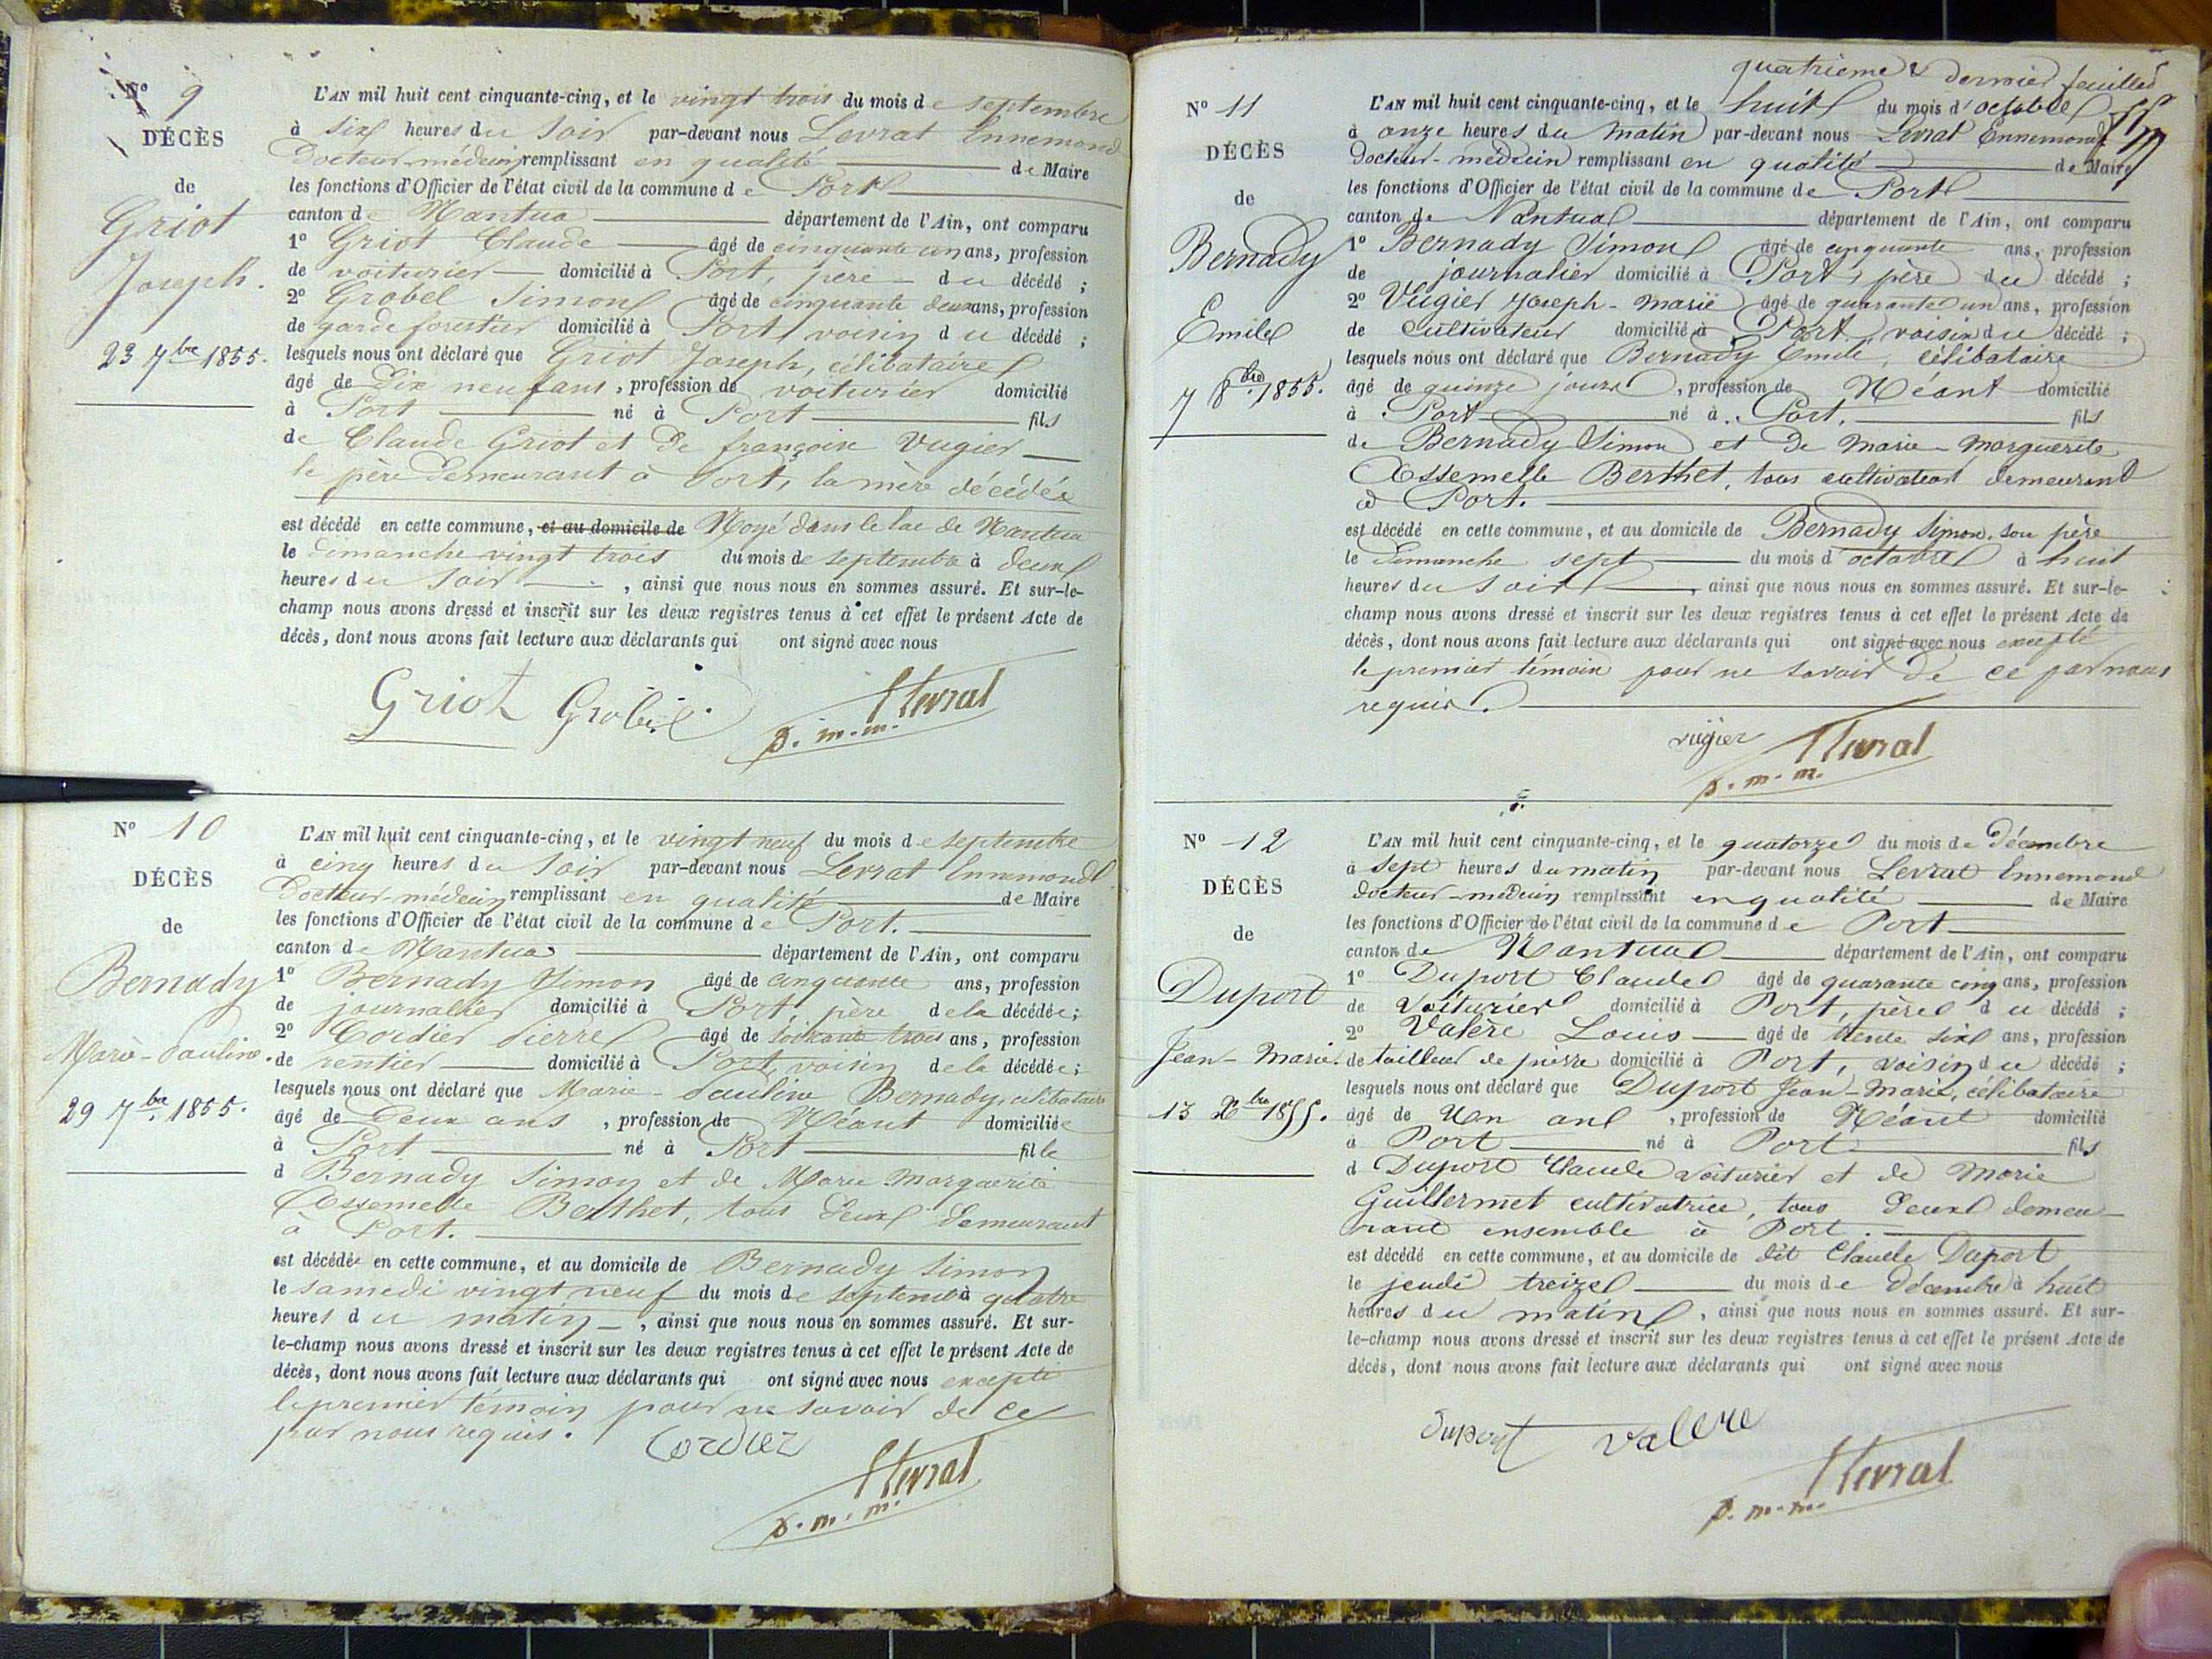 Nº 9
DÉCÈS
de
Griot
Joseph.
23 7bre 1855.
L'AN mil huit cent cinquante-cinq, et le vingt trois du mois de septembre
à six heures du soir par-devant nous Levrat Ennemond
Docteur-médecin remplissant en qualité de Maire
les fonctions d'Officier de l'état civil de la commune de Port
canton de Nantua département de l'Ain, ont comparu
1º Griot Claude âgé de cinquante un ans, profession
de voiturier domicilié à Port, père du décédé ;
2º Grobel Simon âgé de cinquante deux ans, profession
de garde forestier domicilié à Port, voisin du décédé ;
lesquels nous ont déclaré que Griot Joseph, célibataire
âgé de Dix neuf ans, profession de voiturier domicilié
à Port né à Port fils
de Claude Griot et De françoise Vugier
le père Demeurant à Port, la mère décédée
est décédé en cette commune, et au domicile de Noyé dans le lac de Nantua
le dimanche vingt trois du mois de septembre à deux
heures du soir, ainsi que nous nous en sommes assuré. Et sur-le-
champ nous avons dressé et inscrit sur les deux registres tenus à cet effet le présent Acte de
décès, dont nous avons fait lecture aux déclarants qui ont signé avec nous
Griot Grobel Levrat
d. m. m.
Nº 10
DÉCÈS
de
Bernady
Marie-Pauline.
29 7bre 1855.
L'AN mil huit cent cinquante-cinq, et le vingt neuf du mois de septembre
à cinq heures du soir par-devant nous Levrat Ennemond
Docteur-médecin remplissant en qualité de Maire
les fonctions d'Officier de l'état civil de la commune de Port.
canton de Nantua département de l'Ain, ont comparu
1º Bernady Simon âgé de cinquante ans, profession
de journalier domicilié à Port, père de la décédée ;
2º Cordier Pierre âgé de soixante trois ans, profession
de rentier domicilié à Port, voisin de la décédée ;
lesquels nous ont déclaré que Marie-Pauline Bernady, célibataire
âgé de Deux ans, profession de Néant domiciliée
à Port né à Port fille
d Bernady Simon et de Marie Marguerite
Assemelle Berthet, tous Deux Demeurant
à Port.
est décédée en cette commune, et au domicile de Bernady Simon
le samedi vingt neuf du mois de septemb à quatre
heures du matin, ainsi que nous nous en sommes assuré. Et sur-
le-champ nous avons dressé et inscrit sur les deux registres tenus à cet effet le présent Acte de
décès, dont nous avons fait lecture aux déclarants qui ont signé avec nous excepté
le premier témoin pour ne savoir de ce
par nous requis. Cordier
Levrat
d. m. m.
quatrième & dernier feuillet
Nº 11
DÉCÈS
de
Bernady
Emile
7 8bre 1855.
L'AN mil huit cent cinquante-cinq, et le huit du mois d'octobre
à onze heures du matin par-devant nous Levrat Ennemond
Docteur-médecin remplissant en qualité de Maire
les fonctions d'Officier de l'état civil de la commune de Port
canton de Nantua département de l'Ain, ont comparu
1º Bernady Simon âgé de cinquante ans, profession
de journalier domicilié à Port, père du décédé ;
2º Vugier Joseph-Marie âgé de quarante un ans, profession
de cultivateur domicilié à Port, voisin du décédé ;
lesquels nous ont déclaré que Bernady Emile, célibataire
âgé de quinze jours, profession de Néant domicilié
à Port né à Port. fils
de Bernady Simon et De Marie-Marguerite
Assemelle Berthet, tous cultivateurs demeurant
à Port.
est décédé en cette commune, et au domicile de Bernady Simon, son père
le Dimanche sept du mois d'octobre à huit
heures du soir, ainsi que nous nous en sommes assuré. Et sur-le-
champ nous avons dressé et inscrit sur les deux registres tenus à cet effet le présent Acte de
décès, dont nous avons fait lecture aux déclarants qui ont signé avec nous excepté
le premier témoin pour ne savoir De ce par nous
requis.
vugier Levrat
d. m. m.
Nº 12
DÉCÈS
de
Duport
Jean-Marie.
13 Xbre 1855.
L'AN mil huit cent cinquante-cinq, et le quatorze du mois de Décembre
à sept heures du matin par-devant nous Levrat Ennemond
Docteur-médecin remplissant en qualité de Maire
les fonctions d'Officier de l'état civil de la commune de Port
canton de Nantua département de l'Ain, ont comparu
1º Duport Claude âgé de quarante cinq ans, profession
de Voiturier domicilié à Port, père du décédé ;
2º Valère Louis âgé de trente six ans, profession
de tailleur de pierre domicilié à Port, voisin du décédé ;
lesquels nous ont déclaré que Duport Jean-Marie, célibataire
âgé de Un an, profession de Néant domicilié
à Port né à Port fils
d Duport Claude voiturier et de Marie
Guillermet cultivatrice, tous Deux demeu-
rant ensemble à Port.
est décédé en cette commune, et au domicile de dit Claude Duport
le jeudi treize du mois de Décembre à huit
heures du matin, ainsi que nous nous en sommes assuré. Et sur-
le-champ nous avons dressé et inscrit sur les deux registres tenus à cet effet le présent Acte de
décès, dont nous avons fait lecture aux déclarants qui ont signé avec nous
Duport Valere
Levrat
d. m. m.